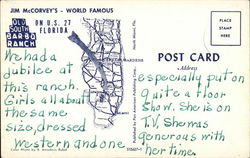 JIM McCORVEY'S - WORLD FAMOUS
OLD SOUTH
BAR-B-Q
RANCH
ON U.S. 27
FLORIDA
PLACE
STAMP
HERE
POST CARD
Address
We had a
jubilee at
this ranch.
Girls all about
the same
size, dressed
Western and one
especially put on
quite a floor
show. She is on
T.V. She was
generous with
her time.